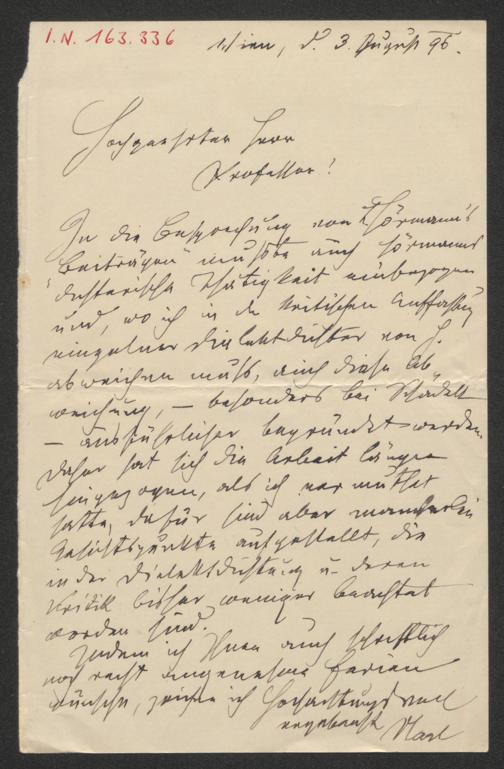 I.N. 163.336
Wien, d. 3. August 96.
Hochgeehrter Herr
Professor!
In die Besprechung von Hörmann's
"Beiträgen" mußte auch Hörmanns
dichterische Thätigkeit einbezogen
und, wo ich in der kritischen Auffassung
einzelner Dialektdichter von H.
abweichen muß, auch diese Ab
weichung, – besonders bei
– ausführlicher begründet werden.
Daher hat sich die Arbeit länger
hingezogen, als ich vermuthet
hatte, dafür sind aber mancherlei
Gesichtspunkte aufgestellt, die
in der Dialektdichtung u. deren
Kritik bisher weniger beachtet
worden sind.
Indem ich Ihnen auch schriftlich
noch recht angenehme Ferien
wünsche, zeichne ich Hochachtungsvoll
ergebenst